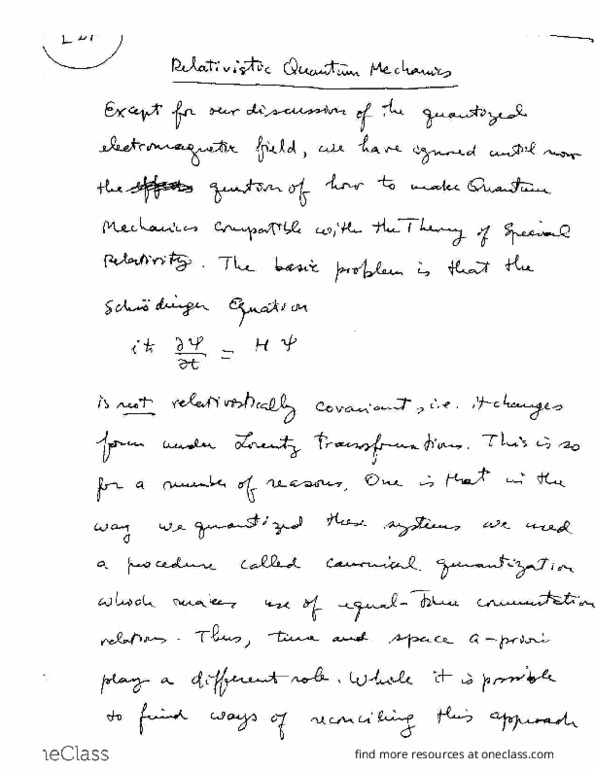 Relativistic Quantum Mechanics
Except for our discussion of the quantized
electromagnetic field, we have ignored until now
the question of how to make Quantum
Mechanics compatible with the Theory of Special
Relativity. The basic problem is that the
Schrödinger Equation
iħ ∂Ψ/∂t = H Ψ
is not relativistically covariant, i.e. it changes
form under Lorentz Transformations. This is so
for a number of reasons. One is that in the
way we quantized these systems we used
a procedure called canonical quantization
which makes use of equal-Time commutation
relations. Thus, time and space a-priori
play a different role. While it is possible
to find ways of reconciling this approach
neClass
find more resources at oneclass.com